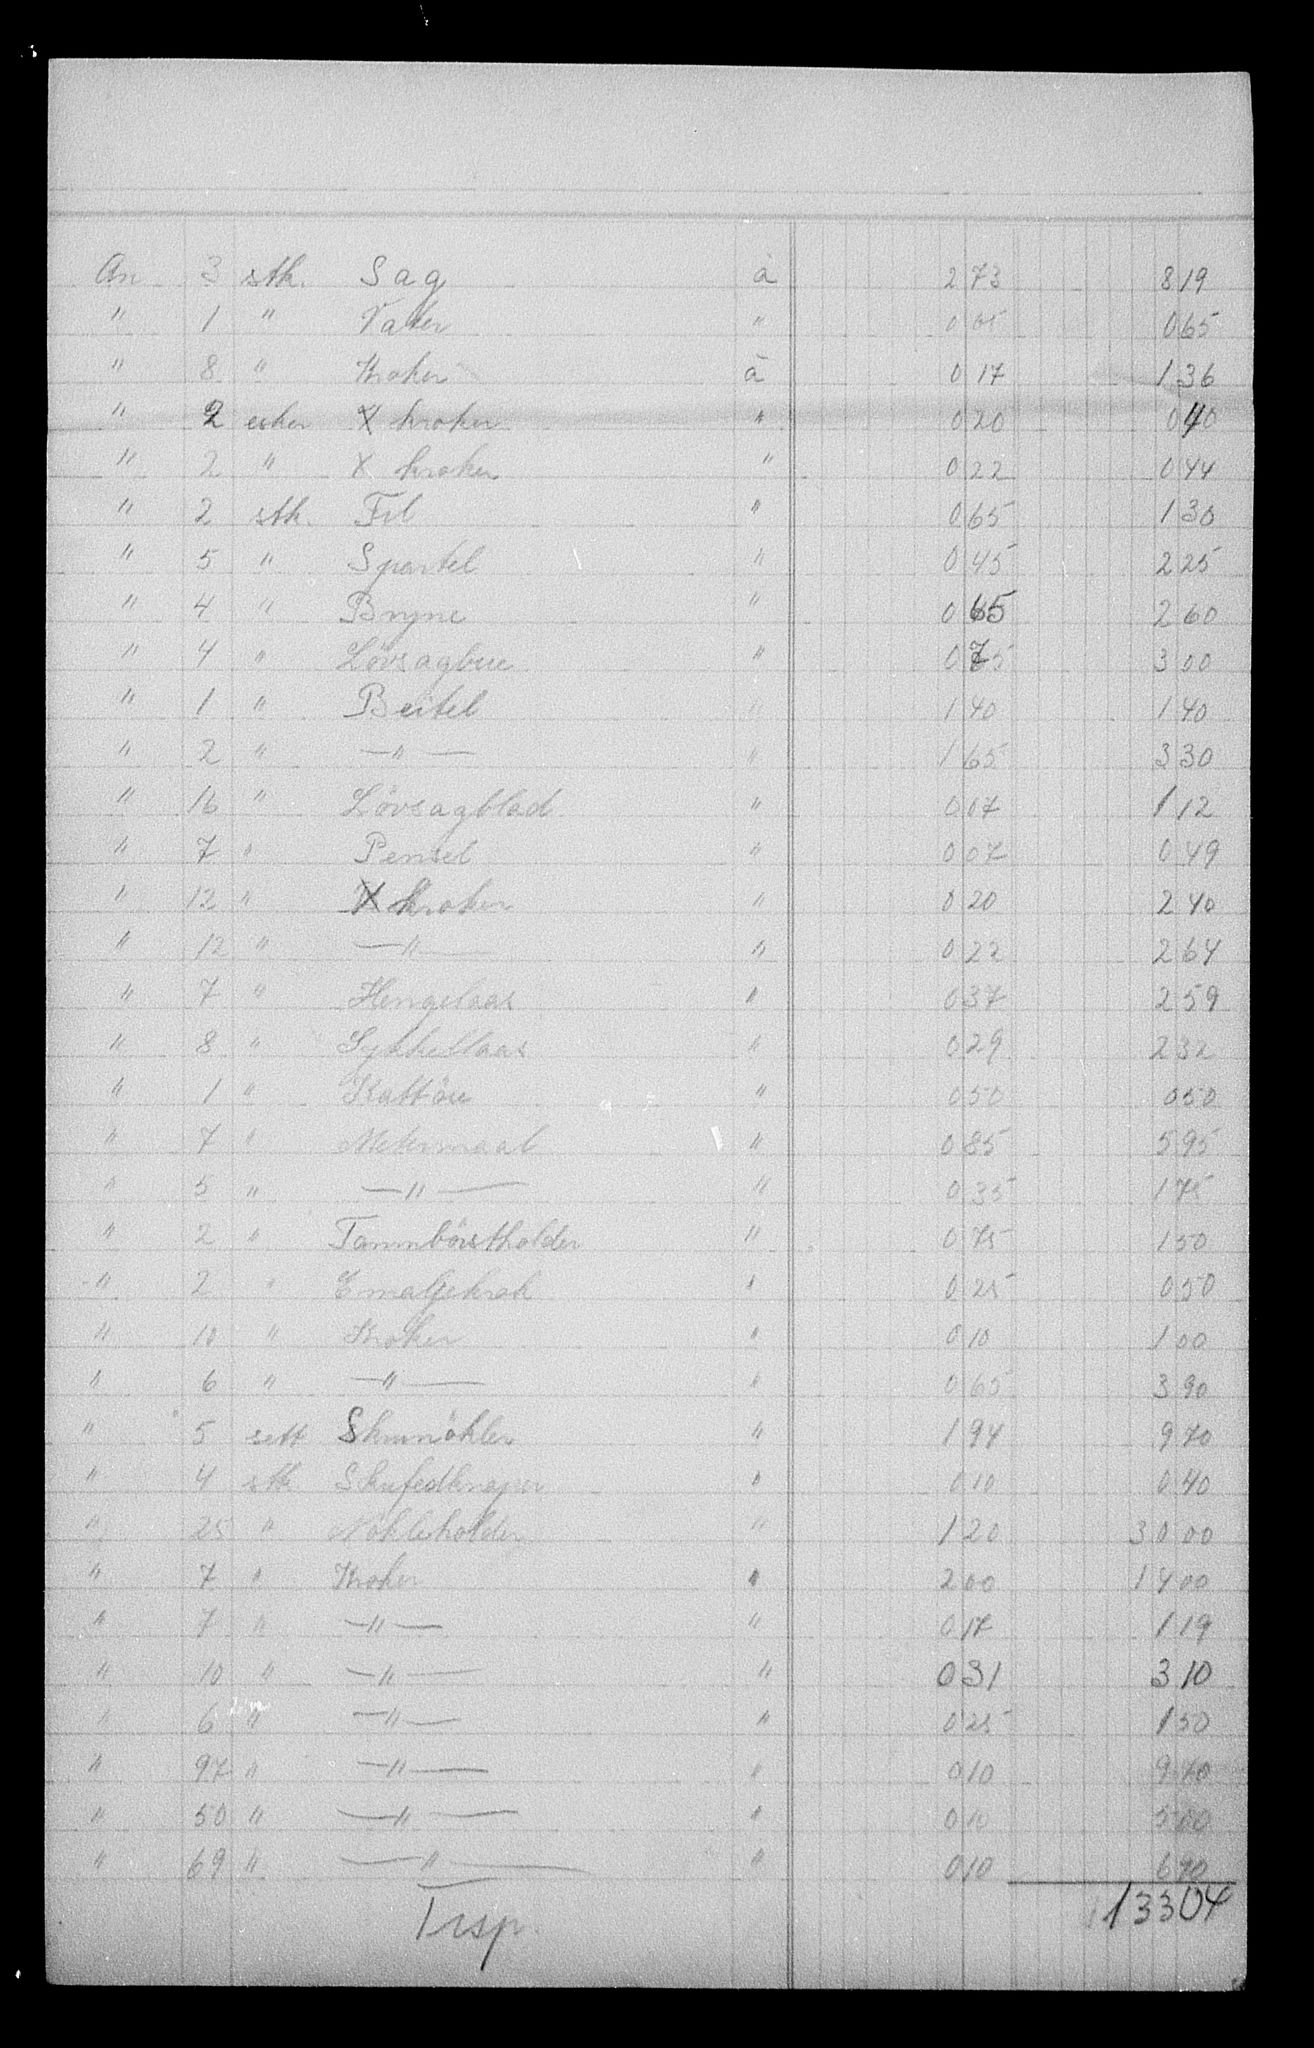 An 3 stk. Sag à 2 73 8 19
" 1 " Vater " 0 65
" 8 " Kroker à 0 17 1 36
" 2 esker X kroker " 0 20 0 40
" 2 " X kroker " 0 22 0 44
" 2 stk. Fil " 0 65 1 30
" 5 " Spartel " 0 45 2 25
" 4 " Bryne " 0 65 2 60
" 4 " Løvsagbue " 0 75 3 00
" 1 " Beitel " 1 40 1 40
" 2 " —"— " 1 65 3 30
" 16 " Løvsagblad " 0 07 1 12
" 7 " Pensel " 0 07 0 49
" 12 " X kroker " 0 20 2 40
" 12 " —"— " 0 22 2 64
" 7 " Hengelaas " 0 37 2 59
" 8 " Sykkellaas " 0 29 2 32
" 1 " " 0 50 0 50
" 7 " Metermaal " 0 85 5 95
" 5 " —"— " 0 35 1 75
" 2 " Tannbörstholder " 0 75 1 50
" 2 " Emaljekrok " 0 25 0 50
" 10 " Kroker " 0 10 1 00
" 6 " —"— " 0 65 3 90
" 5 sett " 1 94 9 70
" 4 stk " 0 10 0 40
" 25 " Nökleholder " 1 20 30 00
" 7 " Kroker " 2 00 14 00
" 7 " —"— " 0 17 1 19
" 10 " —"— " 0 31 3 10
" 6 " —"— " 0 25 1 50
" 97 " —"— " 0 10 9 70
" 50 " —"— " 0 10 5 00
" 69 " —"— " 0 10 6 90
Trsp. 133 04